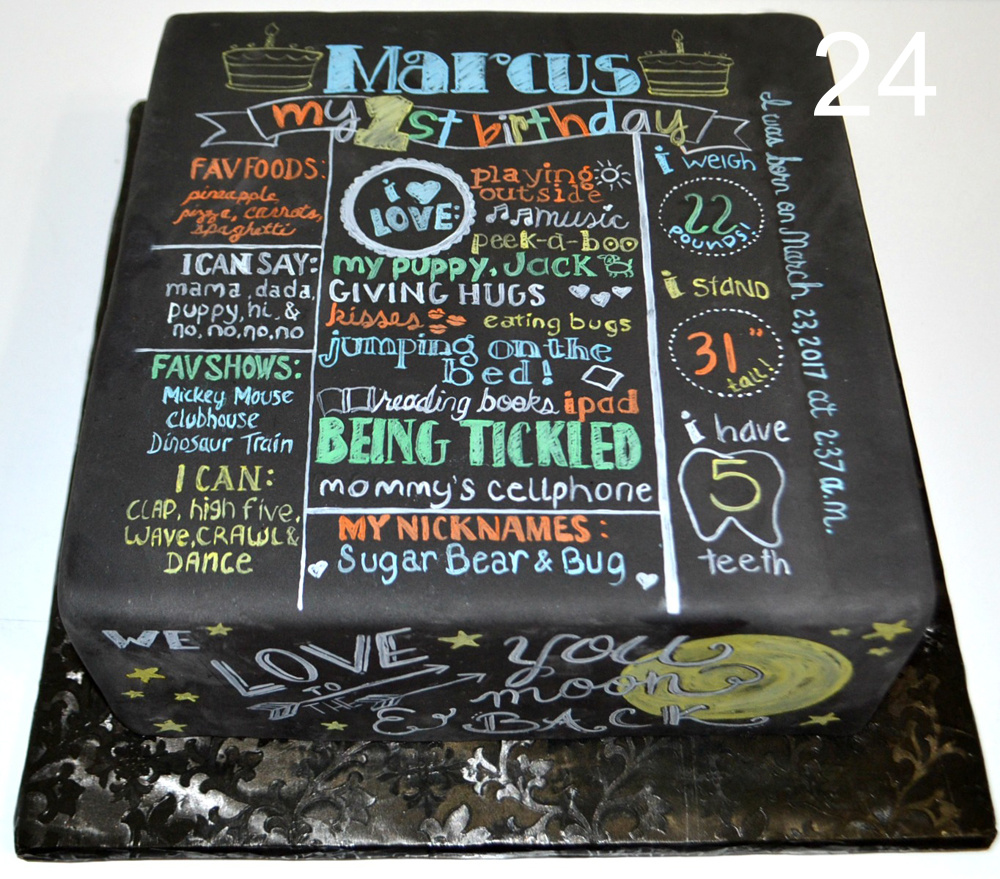 24
Marcus
my 1st birthday
FAV FOODS:
pineapple
pizza, carrots,
spaghetti
I CAN SAY:
mama, dada,
puppy, hi, &
no, no, no, no
FAV SHOWS:
Mickey Mouse
Clubhouse
Dinosaur Train
I CAN:
CLAP, high five,
WAVE, CRAWL &
DANCE
i ♥
LOVE:
playing
outside
music
peek-a-boo
my puppy, Jack
GIVING HUGS
kisses
eating bugs
jumping on the
bed!
reading books
ipad
BEING TICKLED
mommy's cellphone
MY NICKNAMES:
Sugar Bear & Bug
i weigh
22
pounds!
i STAND
31"
tall!
i have
5
teeth
I was born on March 23, 2017 at 2:37 a.m.
WE
LOVE
you
TO
THE
moon
& BACK